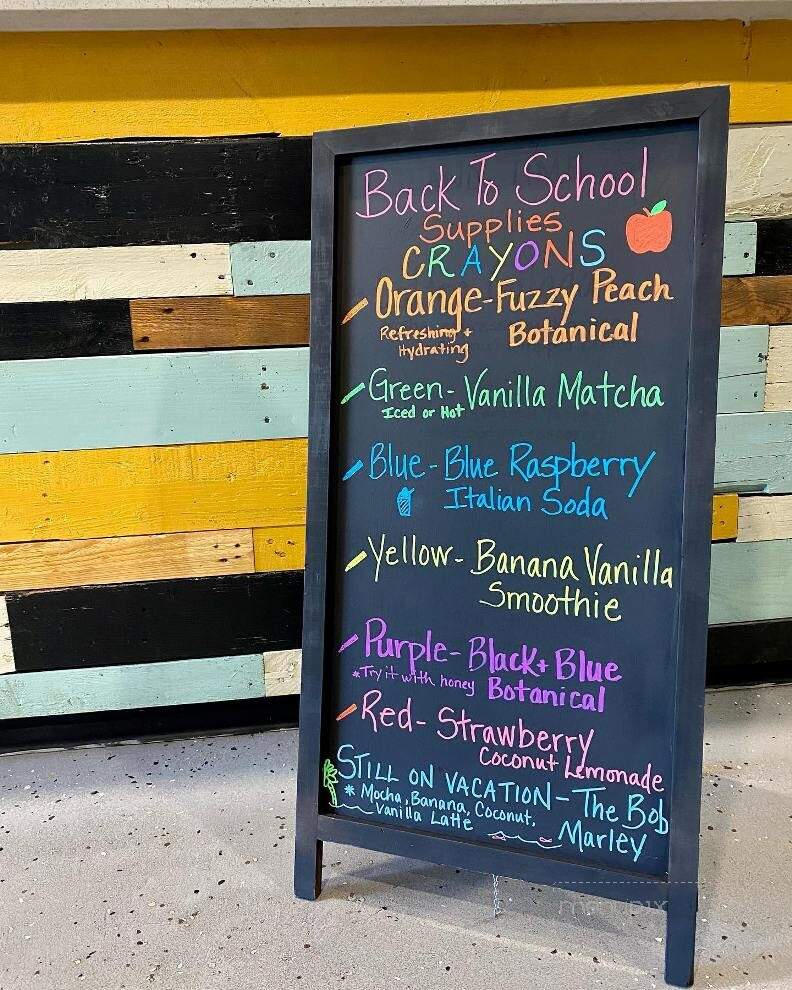 Back To School
Supplies
CRAYONS
Orange-Fuzzy Peach
Refreshing + Botanical
Hydrating
Green-Vanilla Matcha
Iced or Hot
Blue-Blue Raspberry
Italian Soda
Yellow-Banana Vanilla
Smoothie
Purple-Black+Blue
*Try it with honey Botanical
Red-Strawberry
Coconut Lemonade
STILL ON VACATION-The Bob
* Mocha, Banana, Coconut,
Vanilla Latte Marley